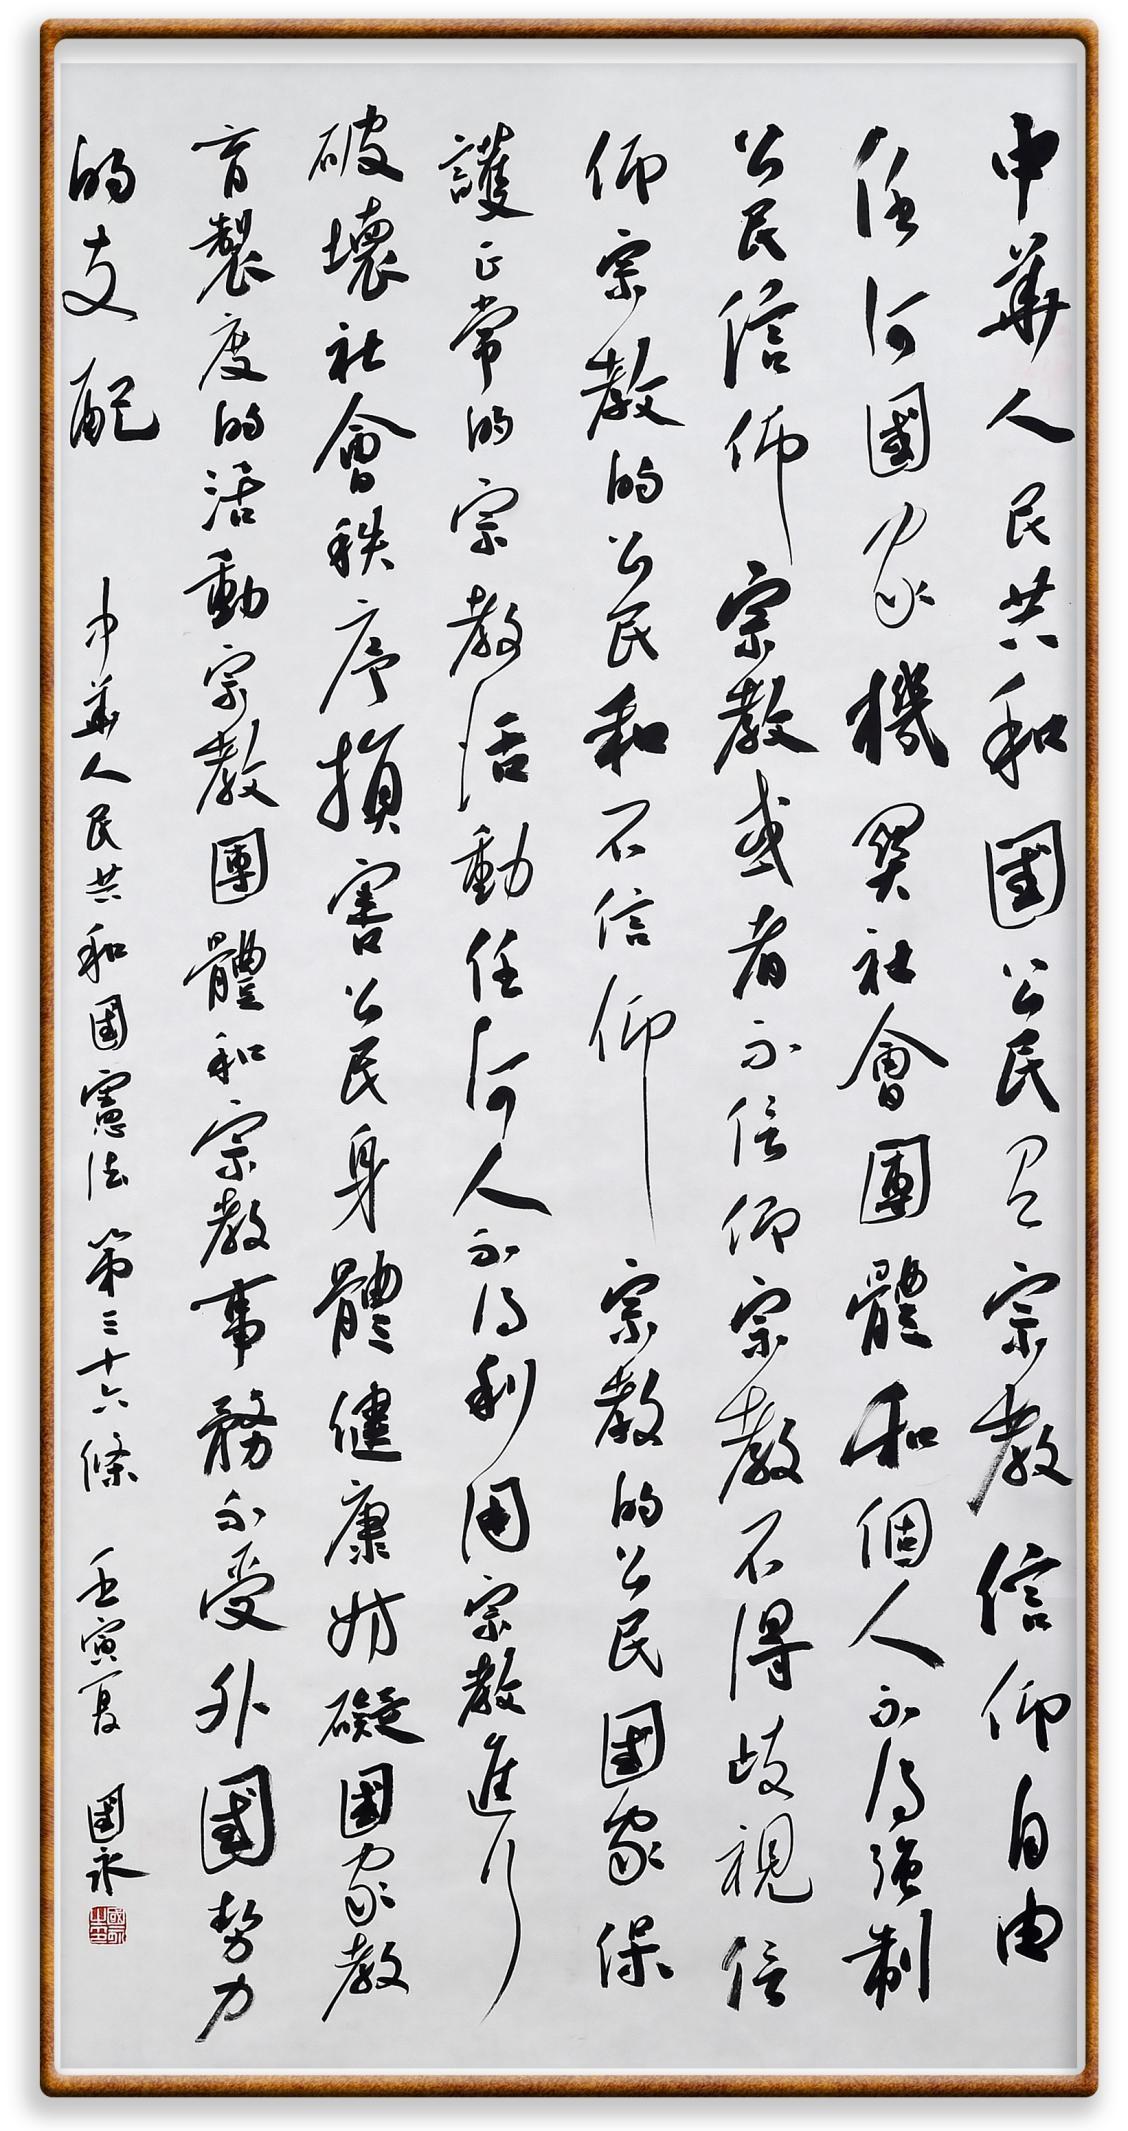 中華人民共和國公民有宗教信仰自由
任何國家機關社會團體和個人不得强制
公民信仰宗教或者不信仰宗教不得歧視信
仰宗教的公民和不信仰宗教的公民國家保
護正常的宗教活動任何人不得利用宗教進行
破壞社會秩序損害公民身體健康妨礙國家教
育製度的活動宗教團體和宗教事務不受外國勢力
的支配
中華人民共和國憲法第三十六條 壬寅夏 國永
國永之印